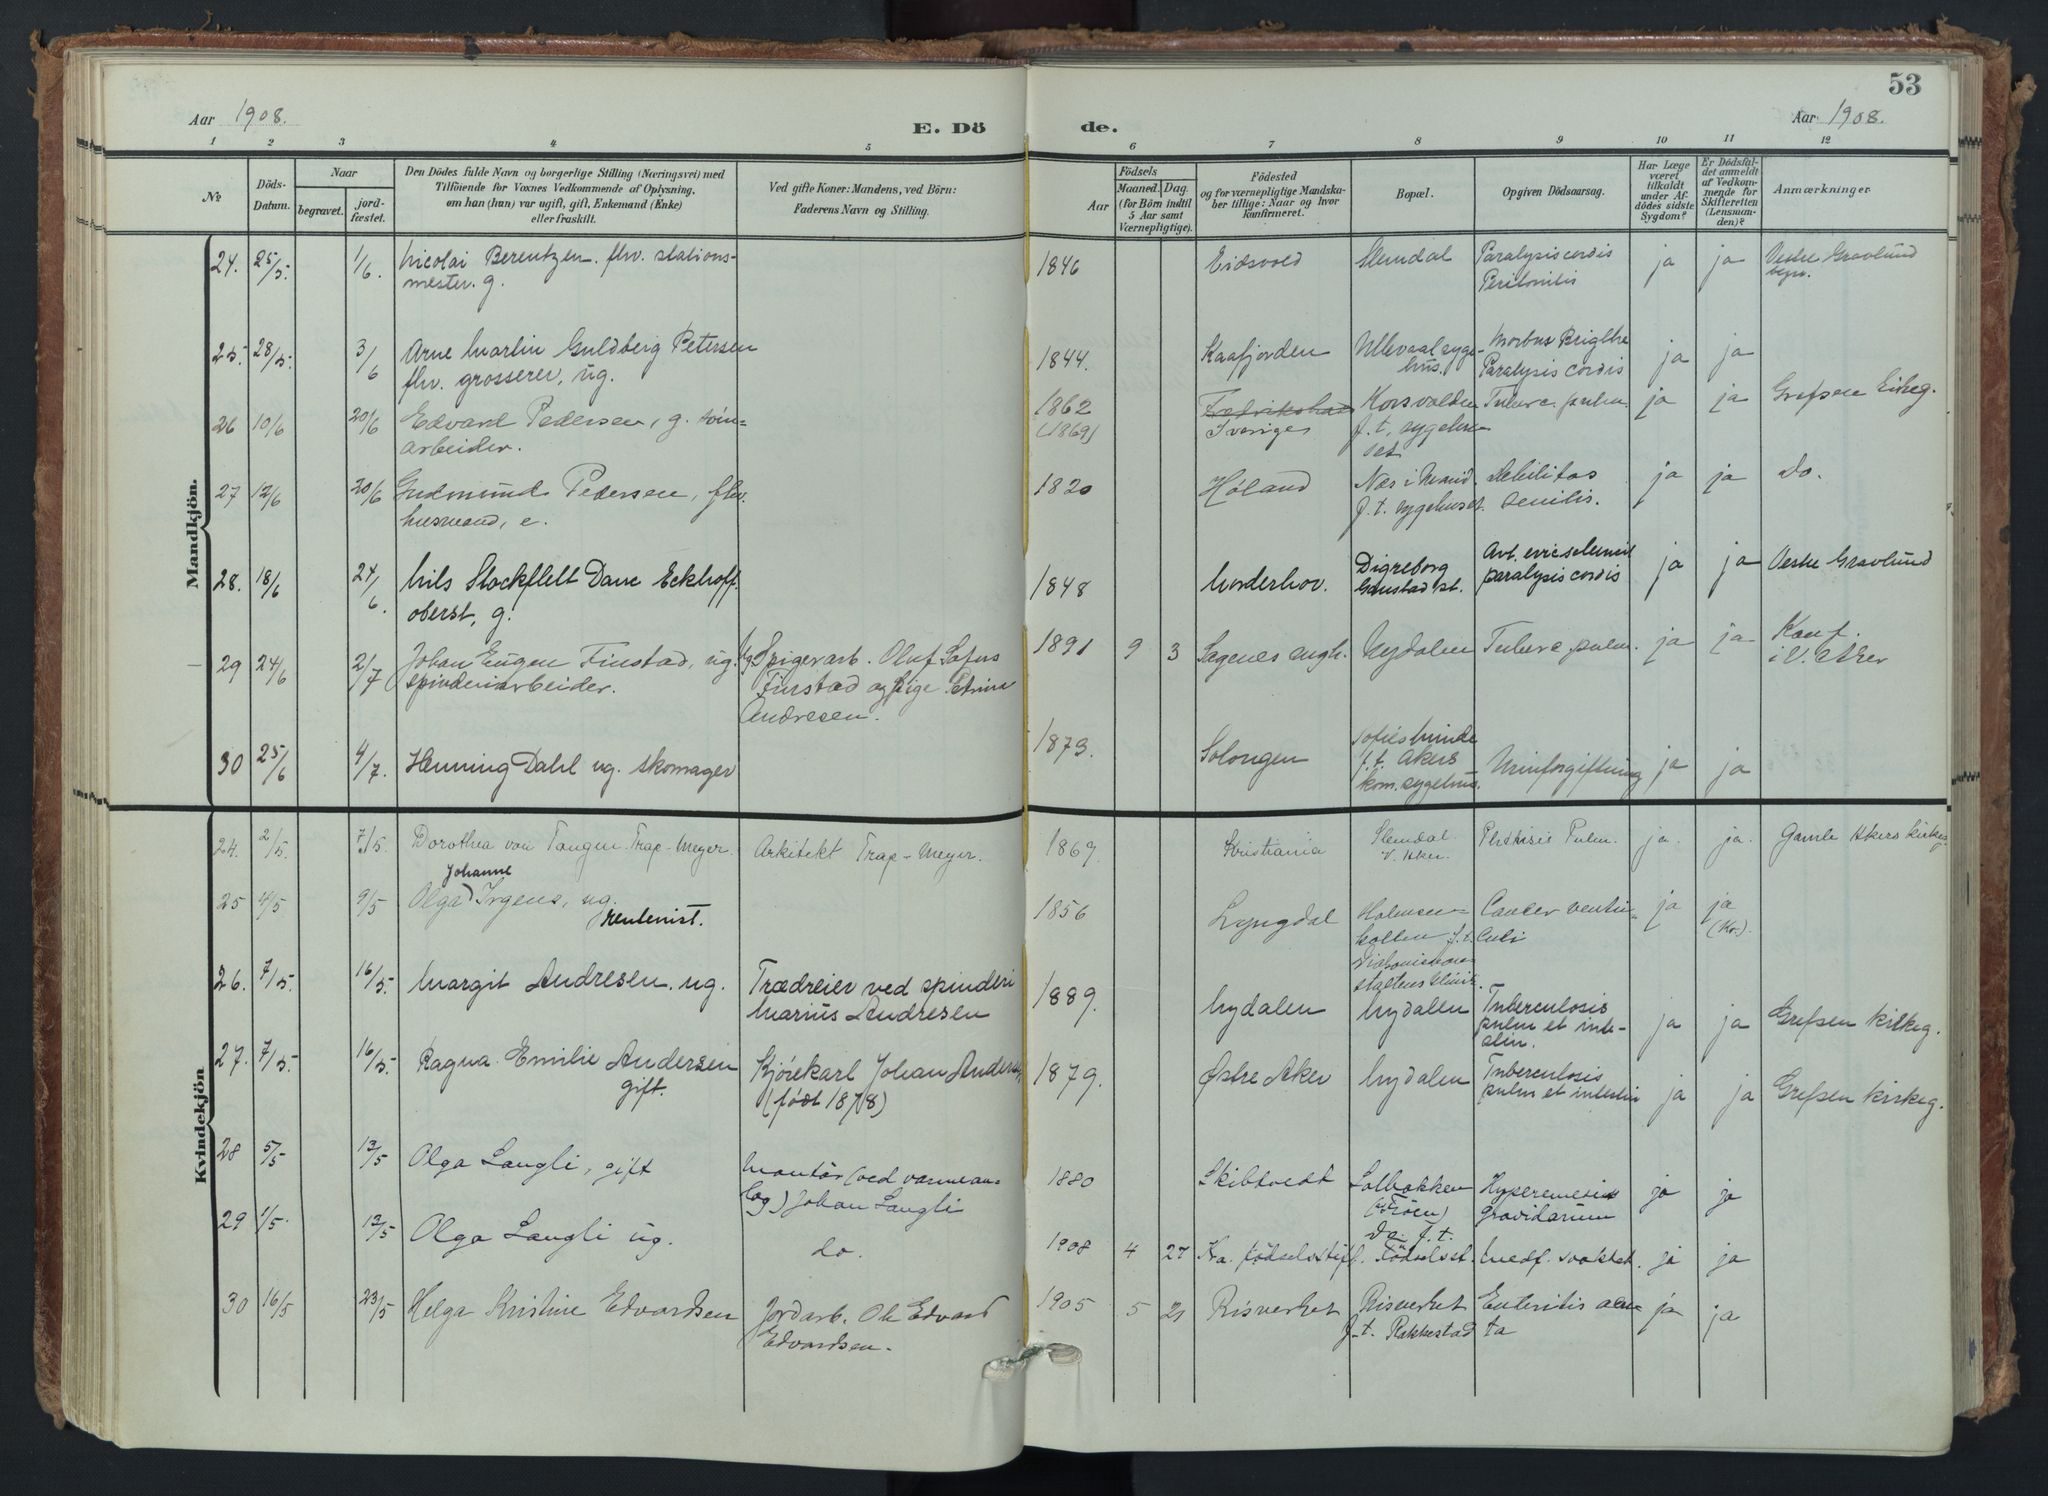 53
Aar 1908.
E. Dö de.
Aar 1908.
1 2 3 4 5 6 7 8 9 10 11 12
No. Döds-Datum. Naar begravet. jordfæstet.
Den Dödes fulde Navn og borgerlige Stilling (Næringsvei) med
Tilföiende for Voxnes Vedkommende af Oplysning,
om han (hun) var ugift, gift, Enkemand (Enke)
eller fraskilt.
Ved gifte Koner: Mandens, ved Börn:
Faderens Navn og Stilling.
Aar
Födsels Maaned. Dag. (for Börn indtil 5 Aar samt Værnepligtige).
Födested
og for værnepligtige Mandskaber tillige: Naar og hvor Konfirmeret.
Bopæl.
Opgiven Dödsaarsag.
Har Læge været tilkaldt under Afdödes sidste Sygdom?
Er Dödsfaldet anmeldt af Vedkommende for Skifteretten (Lensmanden)?
Anmærkninger
Mandkjön.
24. 25/5. 1/6. Nicolai Berentzen. fhv. stations- 1846 Eidsvold Slemdal Paralysis cordis ja ja Vestre Gravlund
mester. g. Peritonitis
25. 28/5. 3/6 Arne Martin Guldberg Petersen 1844. Kaafjorden Ullevaal syge- Morbus Brigthi ja ja
fhv. grosserer, ug. hus. Paralysis cordis
26 10/6 20/6 Edvard Pedersen, g. 1862 Fredrikshald Korsvolden Tuberc. pulm. ja ja Grefsen Kirkeg.
arbeider. (1869) Sverige f. t. sygehu-
set
27 12/6 20/6 Gudmund Pedersen, fhv. 1820 Höland Næs i f. t. sygehuset. Debilitas ja ja do.
husmand, e. senilis.
28. 18/6 24/6. Nils Stockflett Dane Eckhoff. 1848 Norderhov. Digreborg paralysis cordis ja ja Vestre Gravlund
oberst, g. Gaustad st.
29 24/6 2/7 Johan Eugen Finstad, ug. Spigerarb. Oluf Sofus 1891 9 3 Sagenes mgh. Nydalen Tuberc. pulm. ja ja Konf.
spinderiarbeider. Finstad og Pige i V. Aker
Andresen.
30 25/6 4/7. Henning Dahl ug. skomager 1873. Solongen Sofiesminde Urinforgiftning ja ja
f. t. Akers
kom. sygehus.
Kvindekjön
24. 2/5. 7/5. Dorothea von Tangen Trap-Meyer. Arkitekt Trap-Meyer. 1869. Kristiania Slemdal Phthisis Pulm. ja. ja. Gamle Akers kirkeg.
V. Aker.
Johanne
25 4/5 9/5 Olga Irgens, ug. 1856 Lyngdal Holmen- Cancer ventri- ja ja
rentenist. kollen f. t. culi (Kr.).
26. 7/5. 16/5. Margit Andresen. ug. Trædreier ved spinderi 1889. Nydalen Nydalen Tuberculosis ja ja Grefsen kirkeg.
Marius Andresen pulm et inte-
stin.
27. 7/5. 16/5. Ragna Emilie Andersen Kjörekarl Johan Andersen 1879. Östre Aker Nydalen Tuberculosis ja ja Grefsen kirkeg.
gift. (født 1878) pulm et intestin
28 5/5 12/5 Olga Langli, gift Montör (ved varmean- 1880 Skibtvedt Solbakken Hyperemesis ja ja
læg) Johan Langli gravidarum
29 1/5. 12/5 Olga Langli ug. do. 1908 4 27 Kra. fødselsstif. Do. f. t. Födselsst. Medf. svakhet. ja ja
30 16/5 23/5 Helga Kristine Edvardsen Jordarb. Ole Edvard 1905 5 21 Risverket Risverket Enteritis acu- ja ja
Edvardsen. f. t. Rakkestad ta